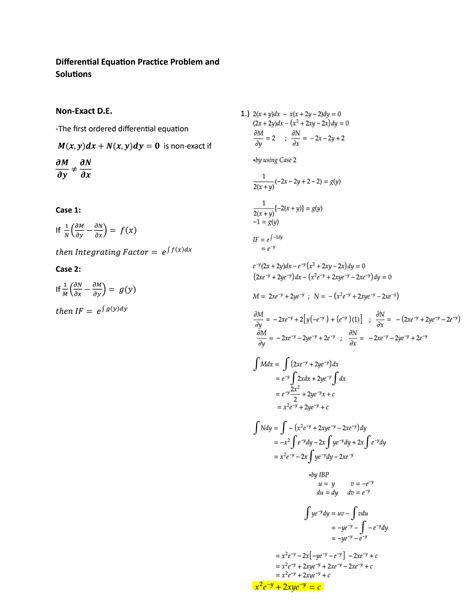 Differential Equation Practice Problem and
Solutions
Non-Exact D.E.
-The first ordered differential equation
M(x, y)dx + N(x, y)dy = 0 is non-exact if
∂M/∂y ≠ ∂N/∂x
Case 1:
If 1/N (∂M/∂y − ∂N/∂x) = f(x)
then Integrating Factor = e^∫f(x)dx
Case 2:
If 1/M (∂N/∂x − ∂M/∂y) = g(y)
then IF = e^∫g(y)dy
1.) 2(x + y)dx − x(x + 2y − 2)dy = 0
(2x + 2y)dx − (x² + 2xy − 2x)dy = 0
∂M/∂y = 2 ; ∂N/∂x = −2x − 2y + 2
•by using Case 2
1/2(x + y) (−2x − 2y + 2 − 2) = g(y)
1/2(x + y) [−2(x + y)] = g(y)
−1 = g(y)
IF = e^∫−1dy
= e^−y
e^−y(2x + 2y)dx − e^−y(x² + 2xy − 2x)dy = 0
(2xe^−y + 2ye^−y)dx − (x²e^−y + 2xye^−y − 2xe^−y)dy = 0
M = 2xe^−y + 2ye^−y ; N = −(x²e^−y + 2xye^−y − 2xe^−y)
∂M/∂y = −2xe^−y + 2[y(−e^−y) + (e^−y)(1)] ; ∂N/∂x = −(2xe^−y + 2ye^−y − 2e^−y)
∂M/∂y = −2xe^−y − 2ye^−y + 2e^−y ; ∂N/∂x = −2xe^−y − 2ye^−y + 2e^−y
∫Mdx = ∫(2xe^−y + 2ye^−y)dx
= e^−y∫2xdx + 2ye^−y∫dx
= e^−y 2x²/2 + 2ye^−yx + c
= x²e^−y + 2ye^−y + c
∫Ndy = ∫−(x²e^−y + 2xye^−y − 2xe^−y)dy
= −x²∫e^−ydy − 2x∫ye^−ydy + 2x∫e^−ydy
= x²e^−y − 2x∫ye^−ydy − 2xe^−y
•by IBP
u = y v = −e^−y
du = dy dv = e^−y
∫ye^−ydy = uv − ∫vdu
= −ye^−y − ∫−e^−ydy
= −ye^−y − e^−y
= x²e^−y − 2x[−ye^−y − e^−y] − 2xe^−y + c
= x²e^−y + 2xye^−y + 2xe^−y − 2xe^−y + c
= x²e^−y + 2xye^−y + c
x²e^−y + 2xye^−y = c